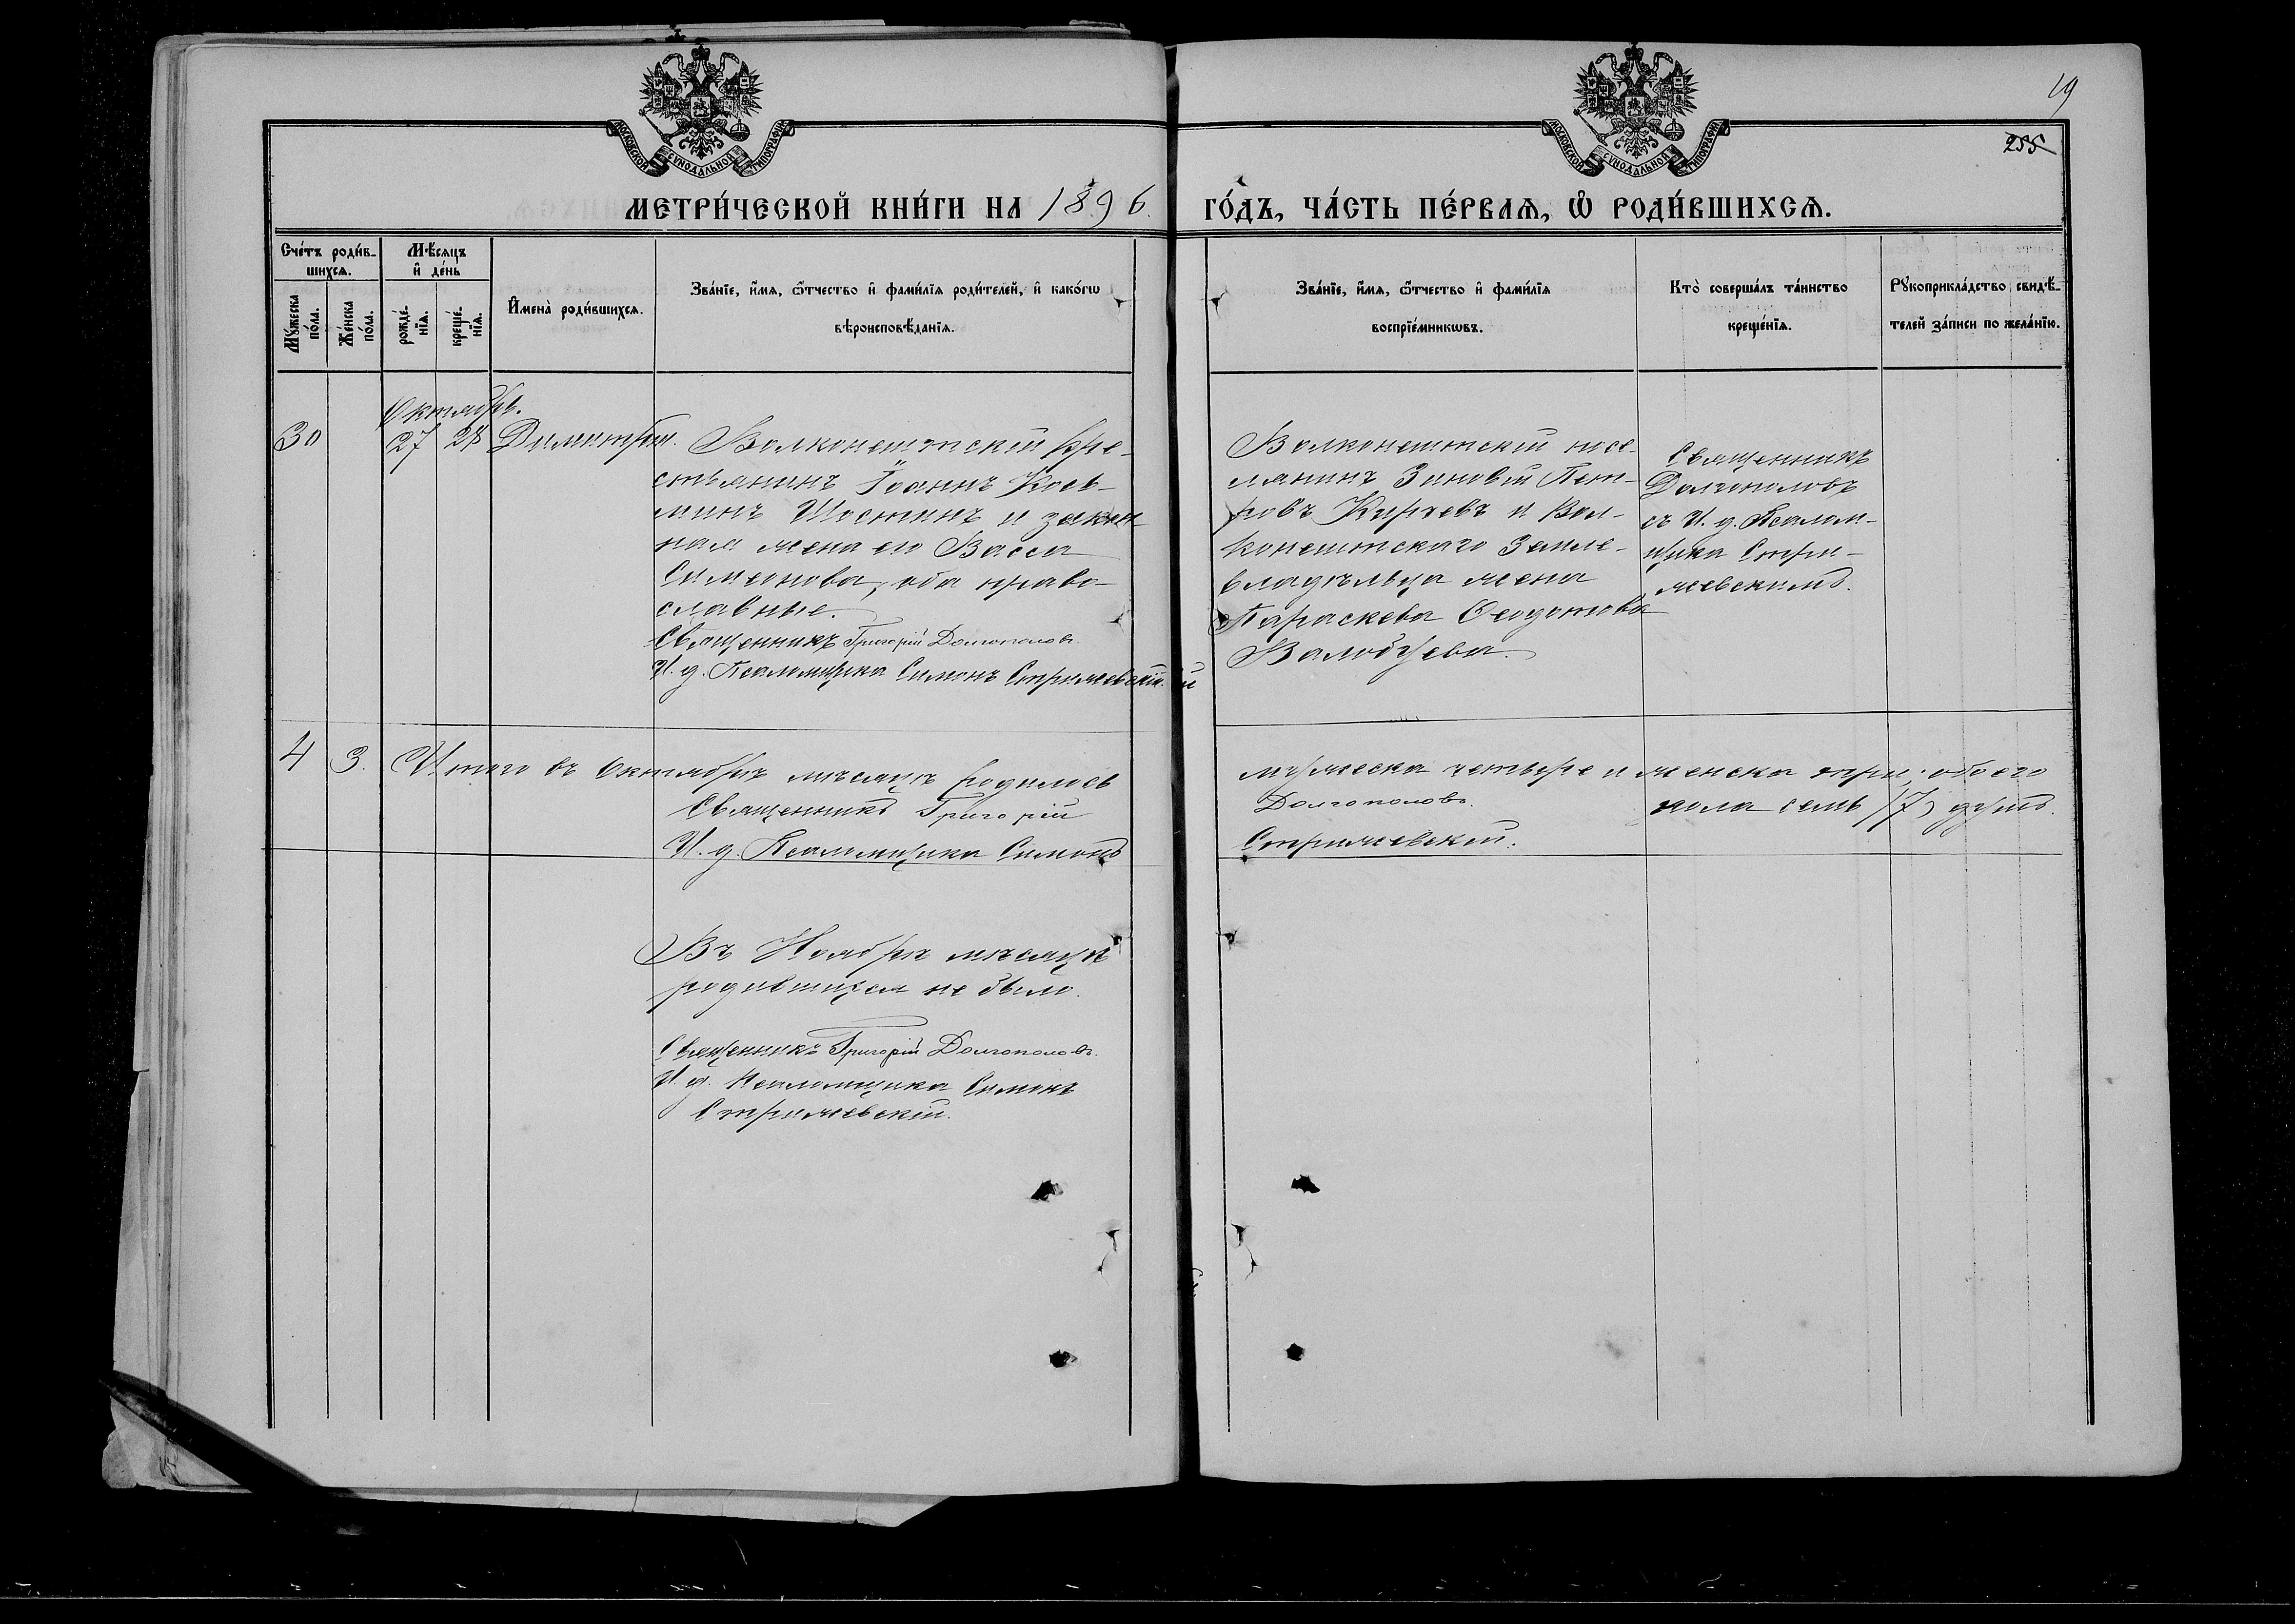 19
255
МОСКОВСКОЙ СѴНОДАЛЬНОЙ ТИПОГРАФІИ
МОСКОВСКОЙ СѴНОДАЛЬНОЙ ТИПОГРАФІИ
МЕТРИ́ЧЕСКОЙ КНИ́ГИ НА 1896. ГО́ДЪ, ЧА́СТЬ ПЕ́РВАѦ, Ѡ҆ РОДИ́ВШИХСѦ.
Сче́тъ роди́в-
шихсѧ.
Мꙋ́жеска по́ла.
Же́нска по́ла.
Мѣ́сѧцъ
и҆ де́нь
рожде́-
нїѧ.
креще́-
нїѧ.
И҆мена̀ роди́вшихсѧ.
Зва́нїе, и҆́мѧ, ѻ҆́тчество и҆ фами́лїѧ роди́телей, и҆ како́гѡ
вѣроисповѣ́данїѧ.
Зва́нїе, и҆́мѧ, ѻ҆́тчество и҆ фами́лїѧ
воспрїе́мникѡвъ.
Кто̀ соверша́лъ та́инство
креще́нїѧ.
Рꙋкоприкла́дство свидѣ́-
телей за́писи по жела́нїю.
Октябрь.
30 27 28 Димитрій.
Волконештскій кре-
стьянинъ Іоаннъ Козь-
минъ Шостинъ и закон-
ная жена его Васса
Симеонова, оба право-
славные.
Священникъ Григорій Долгополовъ
И. д. Псаломщика Симонъ Стрижевскій
Волконештскій посе-
лянинъ Зиновій Пет-
ровъ Киржевъ и Вол-
конештскаго Земле-
владѣльца жена
Параскева Ѳеодотова
Священникъ
Долгополовъ
съ И. д. Псалом-
щика Стри-
жевскимъ.
4 3. Итого въ Октябрѣ мѣсяцѣ родилось мужеска четыре и женска три; обоего
пола семь (7) душъ.
Священникъ Григорій Долгополовъ.
И. д. Псаломщика Симонъ Стрижевскій.
Въ Ноябрѣ мѣсяцѣ
родившихся не было.
Священникъ Григорій Долгополовъ.
И. д. Псаломщика Симонъ
Стрижевскій.